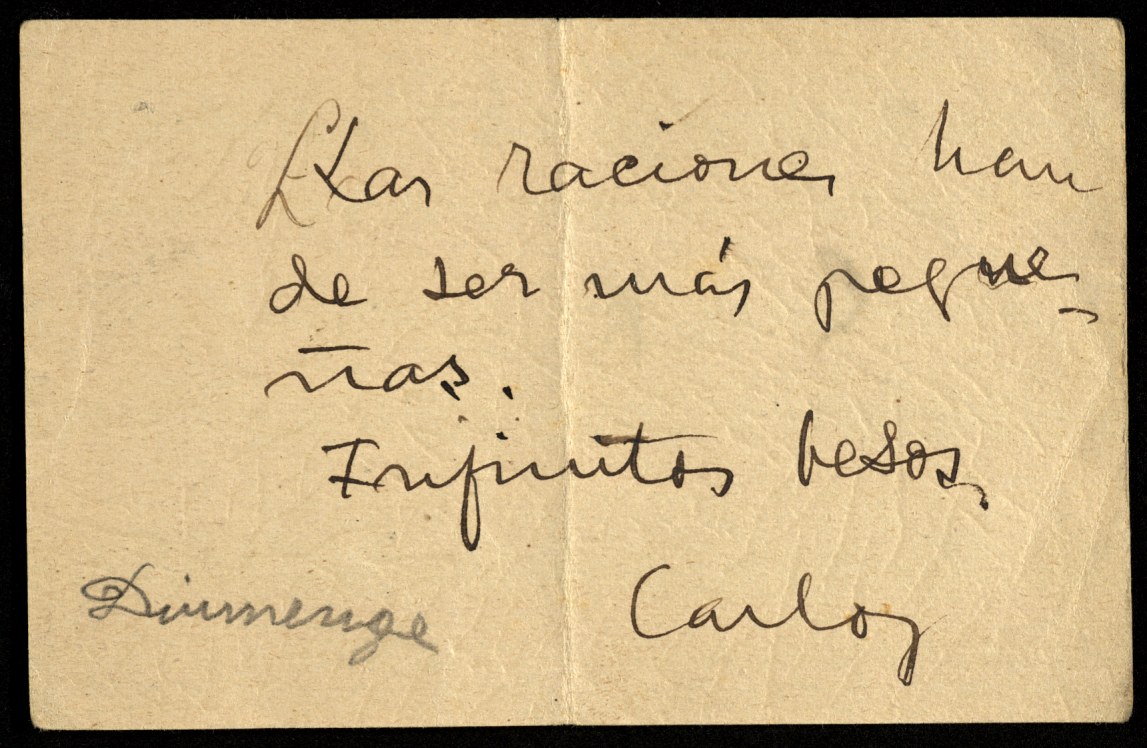 Las raciones han
de ser más peque-
ñas.
Infinitos besos,
Carlos
Diumenge